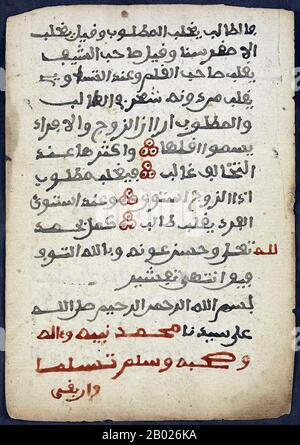 والطالب يغلب المطلوب وقيل يغلب
الاصغر سنا وقيل صاحب السيف
يغلب صاحب القلم وعند التساوي
يغلب من دونه شعر والطالب
والمطلوب ارى الزوج والافراد
يسموا اقلها واكثرها عند
التخالف غالب ويغلب مطلوب
اذا الزوج استوى وعند استوى
الفرد يغلب طالب كمل بحمد
لله تعلى وحسن عونه وبالله التو
فيق انتهى
بسم الله الرحمن الرحيم صلى الله
على سيدنا محمد نبيه وءاله
وصحبه وسلم تسليما
alamy
Image ID: 2B026KA
www.alamy.com